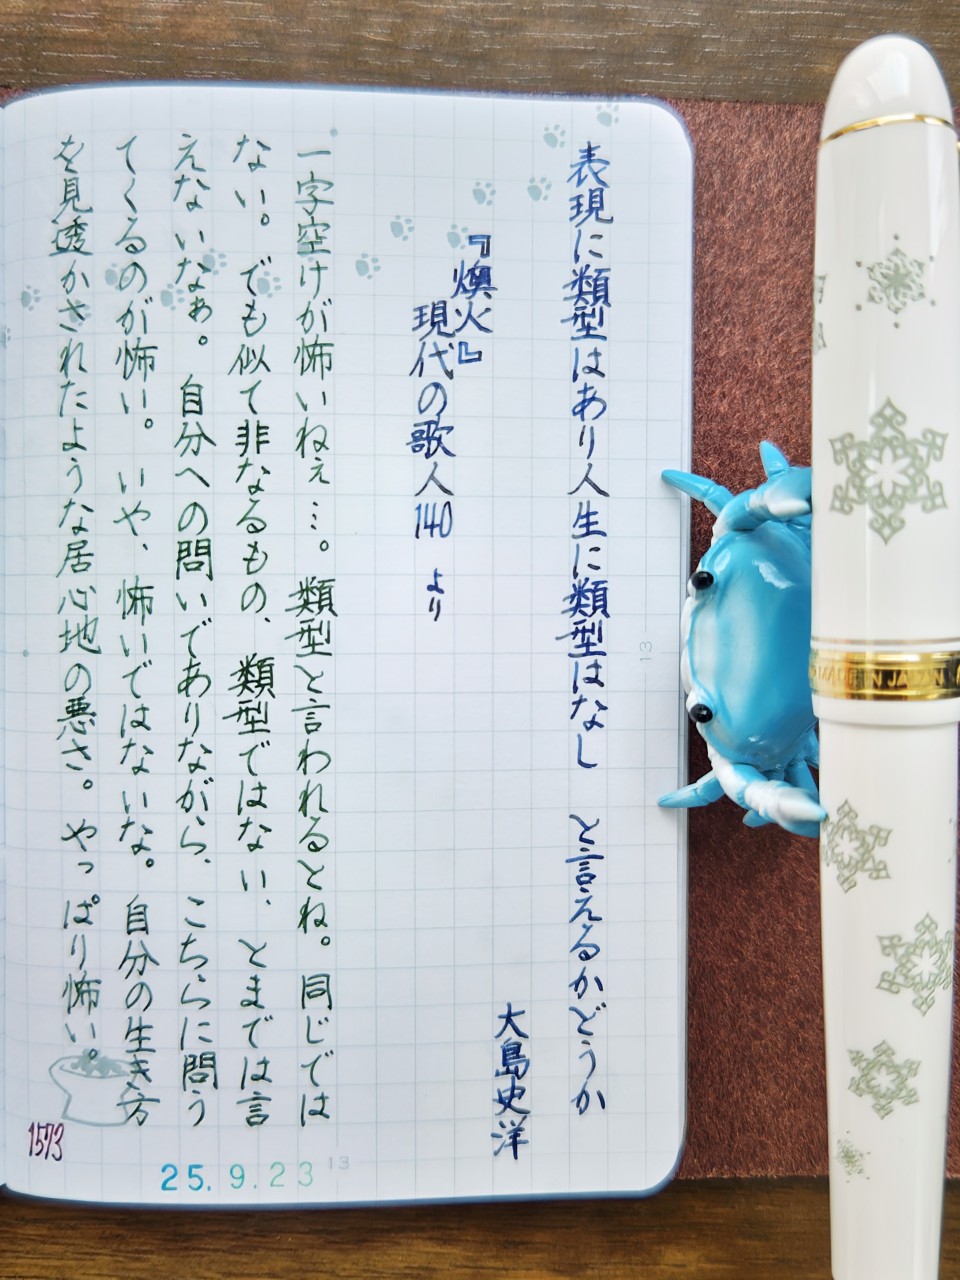 表現に類型はあり人生に類型はなし　と言えるかどうか
大島史洋
『燠火』
現代の歌人140　より
一字空けが怖いねぇ…。類型と言われるとね。同じでは
ない。でも似て非なるもの、類型ではない、とまでは言
えないなぁ。自分への問いでありながら、こちらに問う
てくるのが怖い。いや、怖いではないな。自分の生き方
を見透かされたような居心地の悪さ。やっぱり怖い。
1573
25.9.23
13
13
MADE IN JAPAN